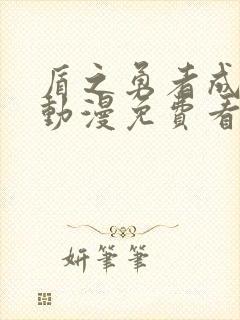 盾之勇者成
動漫免費看
妍筆筆